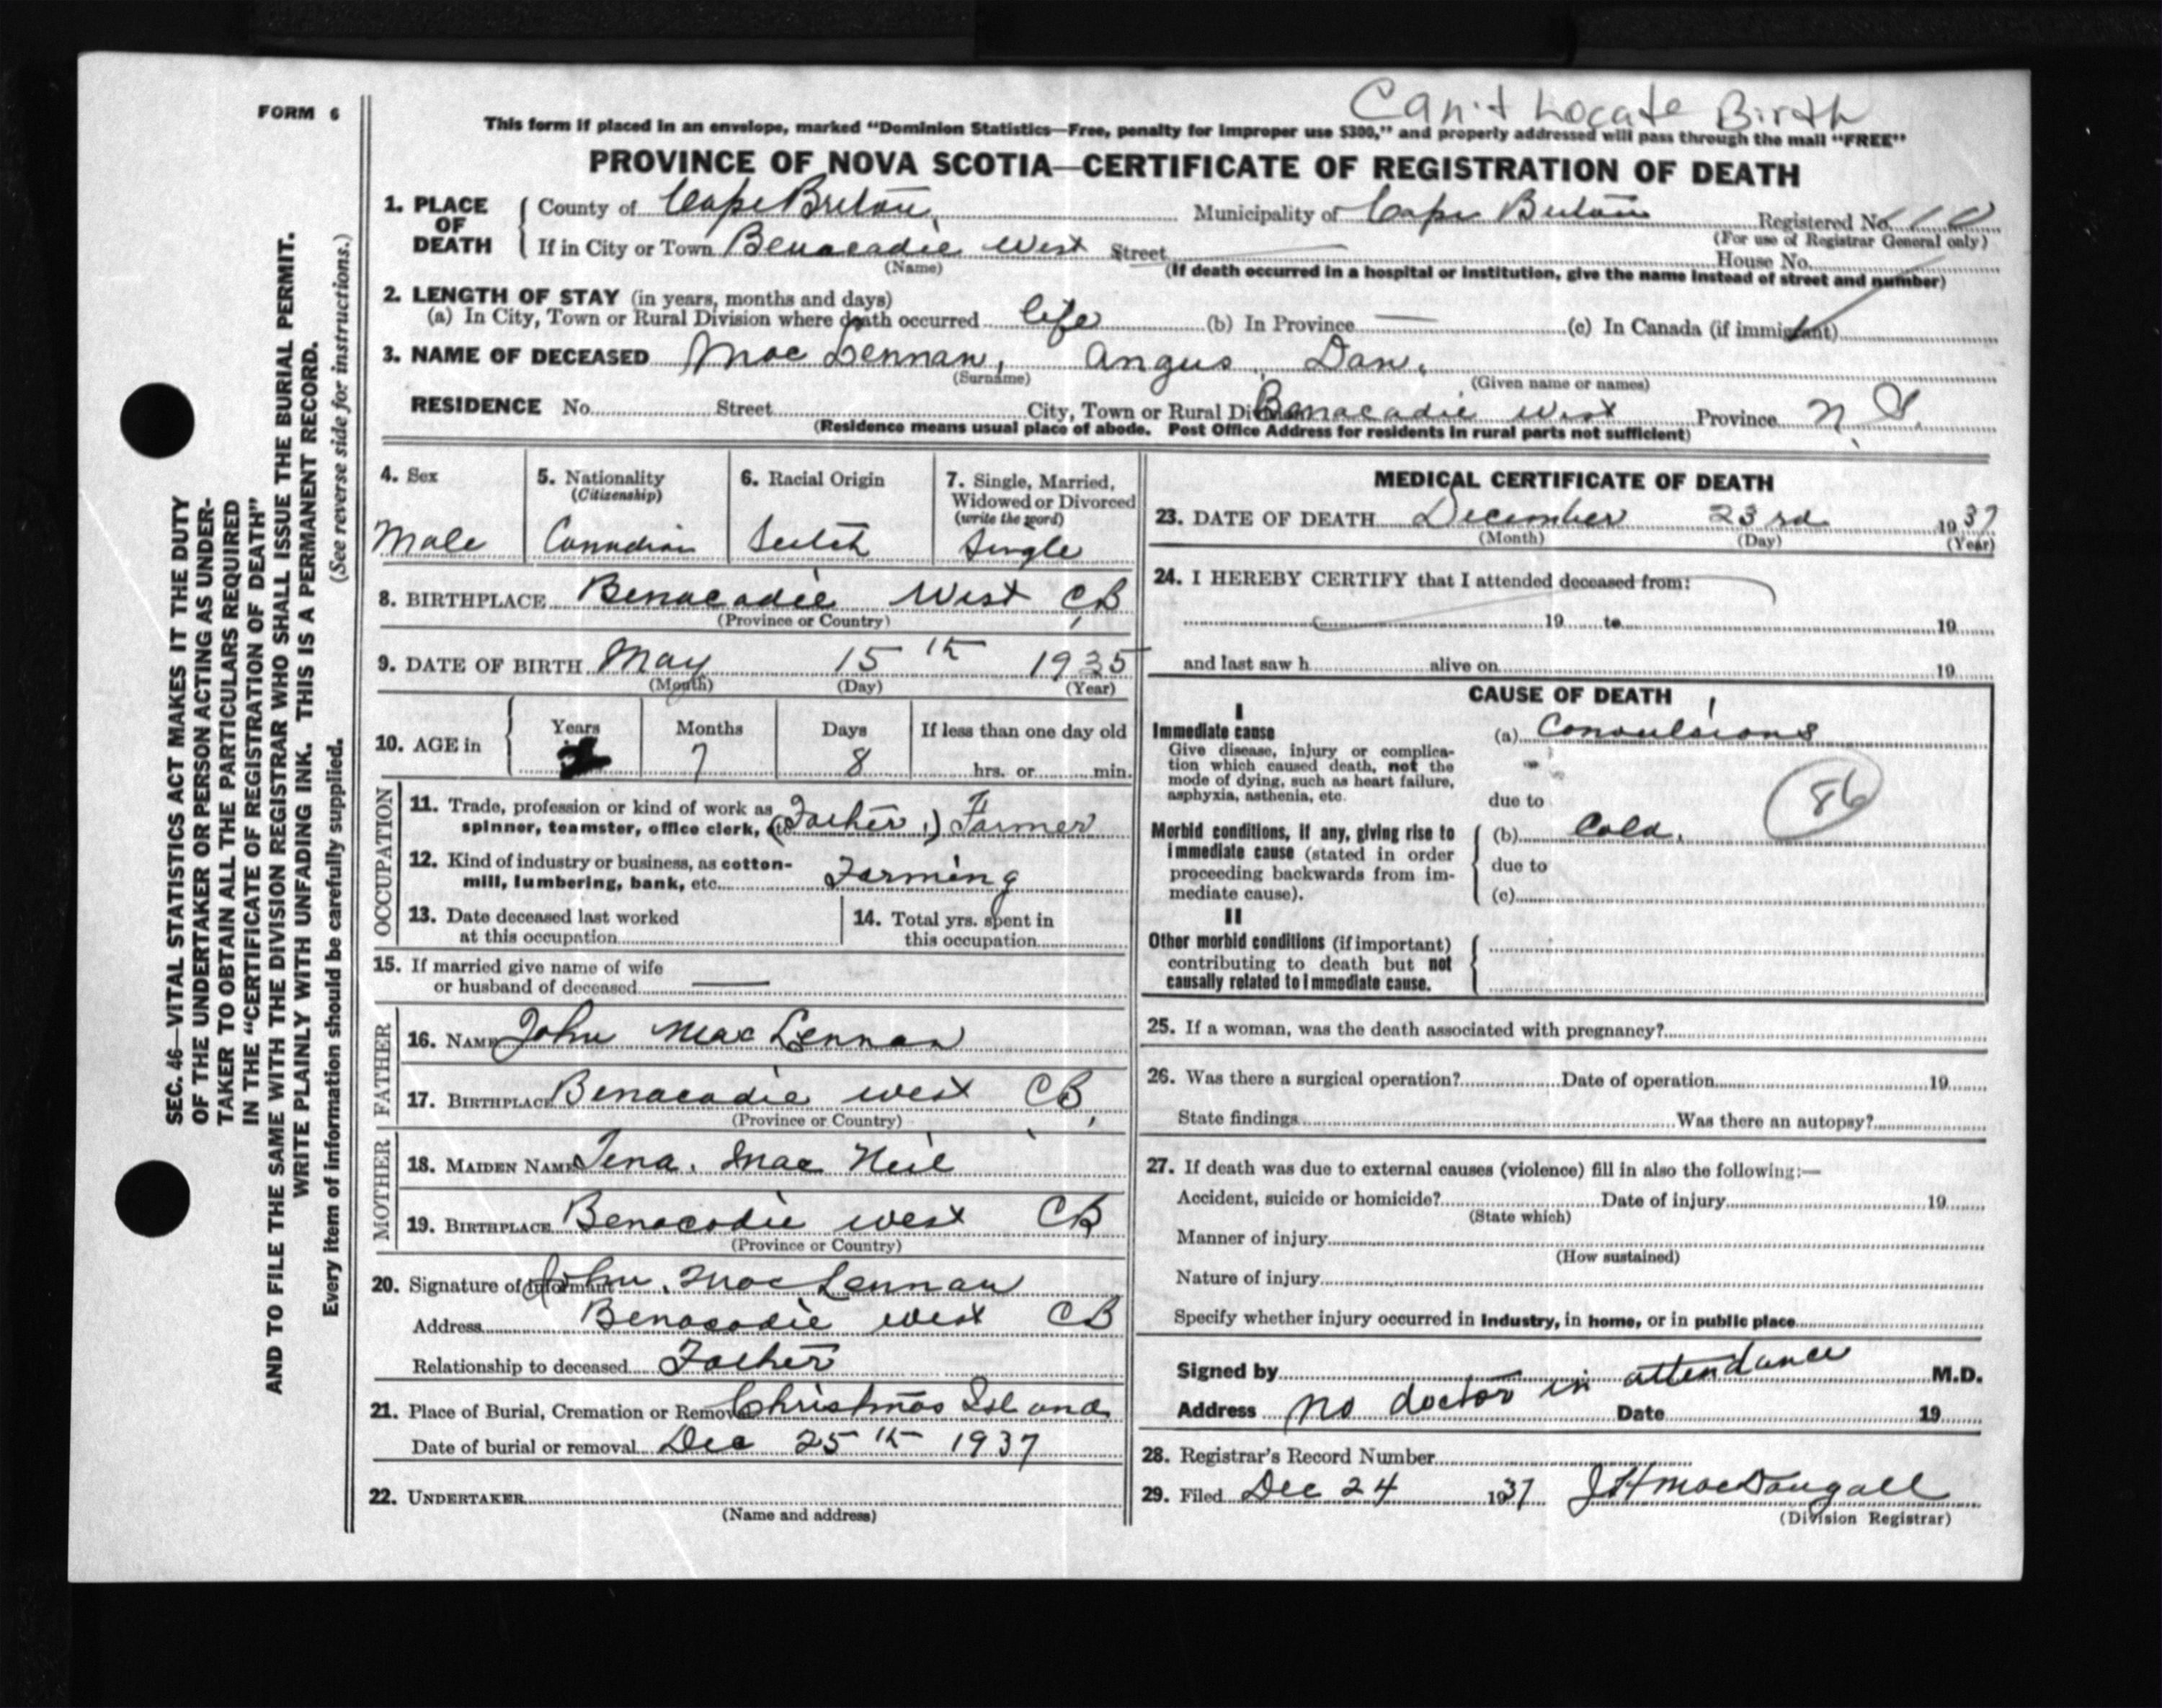 Can't Locate Birth
FORM 6
This form if placed in an envelope, marked "Dominion Statistics—Free, penalty for improper use $300," and properly addressed will pass through the mail "FREE"
PROVINCE OF NOVA SCOTIA—CERTIFICATE OF REGISTRATION OF DEATH
1. PLACE OF DEATH County of Cape Breton, Municipality of Cape Breton Registered No.
(For use of Registrar General only)
If in City or Town Benacadie West Street House No.
(Name) (If death occurred in a hospital or institution, give the name instead of street and number)
2. LENGTH OF STAY (in years, months and days)
(a) In City, Town or Rural Division where death occurred life (b) In Province — (c) In Canada (if immigrant)
3. NAME OF DECEASED Mac Lennan, Angus Dan.
(Surname) (Given name or names)
RESIDENCE No. Street City, Town or Rural Division Benacadie West Province N. S.
(Residence means usual place of abode. Post Office Address for residents in rural parts not sufficient)
4. Sex Male
5. Nationality (Citizenship) Canadian
6. Racial Origin Scotch
7. Single, Married, Widowed or Divorced (write the word) Single
8. BIRTHPLACE Benacadie West C.B
(Province or Country)
9. DATE OF BIRTH May 15th 1935
(Month) (Day) (Year)
10. AGE in Years 2 Months 7 Days 8 If less than one day old hrs. or min.
OCCUPATION
11. Trade, profession or kind of work as spinner, teamster, office clerk, etc (Father,) Farmer
12. Kind of industry or business, as cotton-mill, lumbering, bank, etc. Farming
13. Date deceased last worked at this occupation
14. Total yrs. spent in this occupation
15. If married give name of wife or husband of deceased —
FATHER
16. NAME John Mac Lennan
17. BIRTHPLACE Benacadie west C.B,
(Province or Country)
MOTHER
18. MAIDEN NAME Tena. Mac Neil
19. BIRTHPLACE Benacadie west CB
(Province or Country)
20. Signature of informant John. MacLennan
Address Benacadie west CB
Relationship to deceased Father
21. Place of Burial, Cremation or Removal Christmas Island
Date of burial or removal Dec 25th 1937
22. UNDERTAKER
(Name and address)
MEDICAL CERTIFICATE OF DEATH
23. DATE OF DEATH December 23rd 1937
(Month) (Day) (Year)
24. I HEREBY CERTIFY that I attended deceased from:
19 to 19
and last saw h alive on 19
CAUSE OF DEATH
I
Immediate cause (a) Convulsions
Give disease, injury or complication which caused death, not the mode of dying, such as heart failure, asphyxia, asthenia, etc.
due to
86
Morbid conditions, if any, giving rise to immediate cause (stated in order proceeding backwards from immediate cause). (b) Cold.
due to
(c)
II
Other morbid conditions (if important) contributing to death but not causally related to immediate cause.
25. If a woman, was the death associated with pregnancy?
26. Was there a surgical operation? Date of operation 19
State findings Was there an autopsy?
27. If death was due to external causes (violence) fill in also the following:—
Accident, suicide or homicide? Date of injury 19
(State which)
Manner of injury
(How sustained)
Nature of injury
Specify whether injury occurred in industry, in home, or in public place
Signed by M.D.
Address no doctor in attendance Date 19
28. Registrar's Record Number
29. Filed Dec 24 1937 J H MacDougall
(Division Registrar)
SEC. 46—VITAL STATISTICS ACT MAKES IT THE DUTY
OF THE UNDERTAKER OR PERSON ACTING AS UNDER-
TAKER TO OBTAIN ALL THE PARTICULARS REQUIRED
IN THE "CERTIFICATE OF REGISTRATION OF DEATH"
AND TO FILE THE SAME WITH THE DIVISION REGISTRAR WHO SHALL ISSUE THE BURIAL PERMIT.
WRITE PLAINLY WITH UNFADING INK. THIS IS A PERMANENT RECORD.
Every item of information should be carefully supplied. (See reverse side for instructions.)